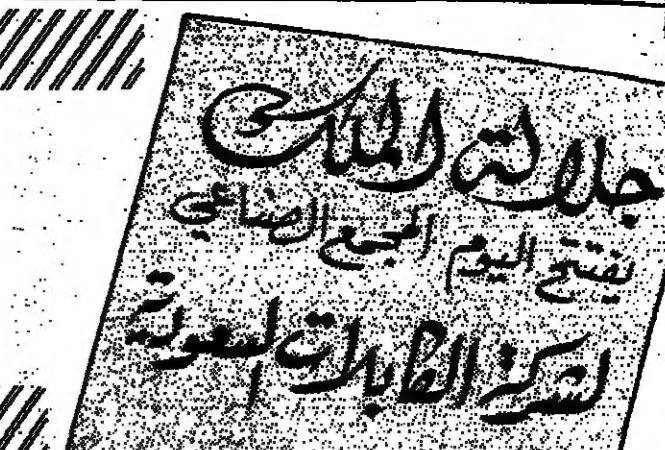 جلالة الملك
يفتتح اليوم المجمع الصناعي
لشركة الكابلات السعودية